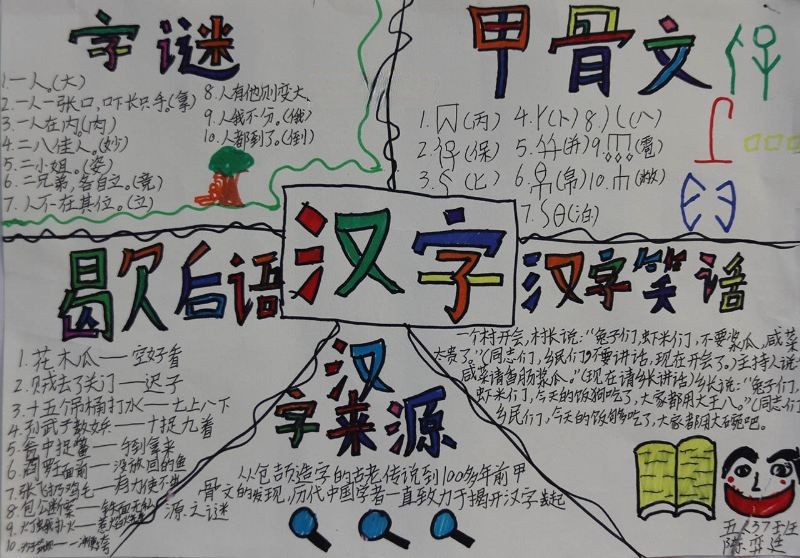 字谜
1.一人。(大)
2.一人一张口,口下长只手。(拿)
3.一人在内。(肉)
4.二八佳人。(妙)
5.二小姐。(姿)
6.二兄弟,各自立。(竞)
7.人不在其位。(立)
8.人有他则变大
9.人我不分。(俄)
10.人都到了。(倒)
甲骨文
1.(丙)
2.(保)
3.(匕)
4.(卜)
5.(并)
6.(帛)
7.(泊)
8.(八)
9.(雹)
10.
汉字
歇后语
1.花木瓜——空好看
2.贼去了关门——迟了
3.十五个吊桶打水——七上八下
4.孙武子教女兵——十捉九着
5.瓮中捉鳖——手到拿来
6.没放回的鱼
7.张飞有力使不出
8.包公断案——铁面无私
9.灯蛾扑火——惹焰
10.
汉字来源
从包颉造字的古老传说到100多年前甲
骨文的发现,历代中国学者一直致力于揭开汉字起
源之谜
汉字笑话
一个村开会,村长说:“兔子们,虾米们,不要酱瓜,咸菜
太贵了。”(同志们,乡民们,不要讲话,现在开会了。)主持人说:“
咸菜请香肠酱瓜。”(现在请乡长讲话)乡长说:“兔子们,
虾米们,今天的饭狗吃了,大家都用大王八。”(同志们,
乡民们,今天的饭够吃了,大家都用大碗吧。
五(3)37
陈奕廷